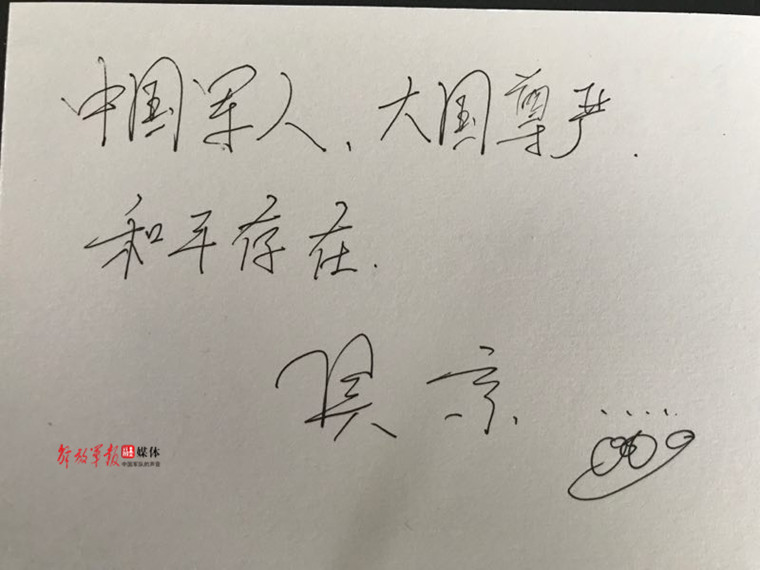 中国军人、大国尊严.
和平存在.
吴京
解放军报融媒体
中国军队的声音